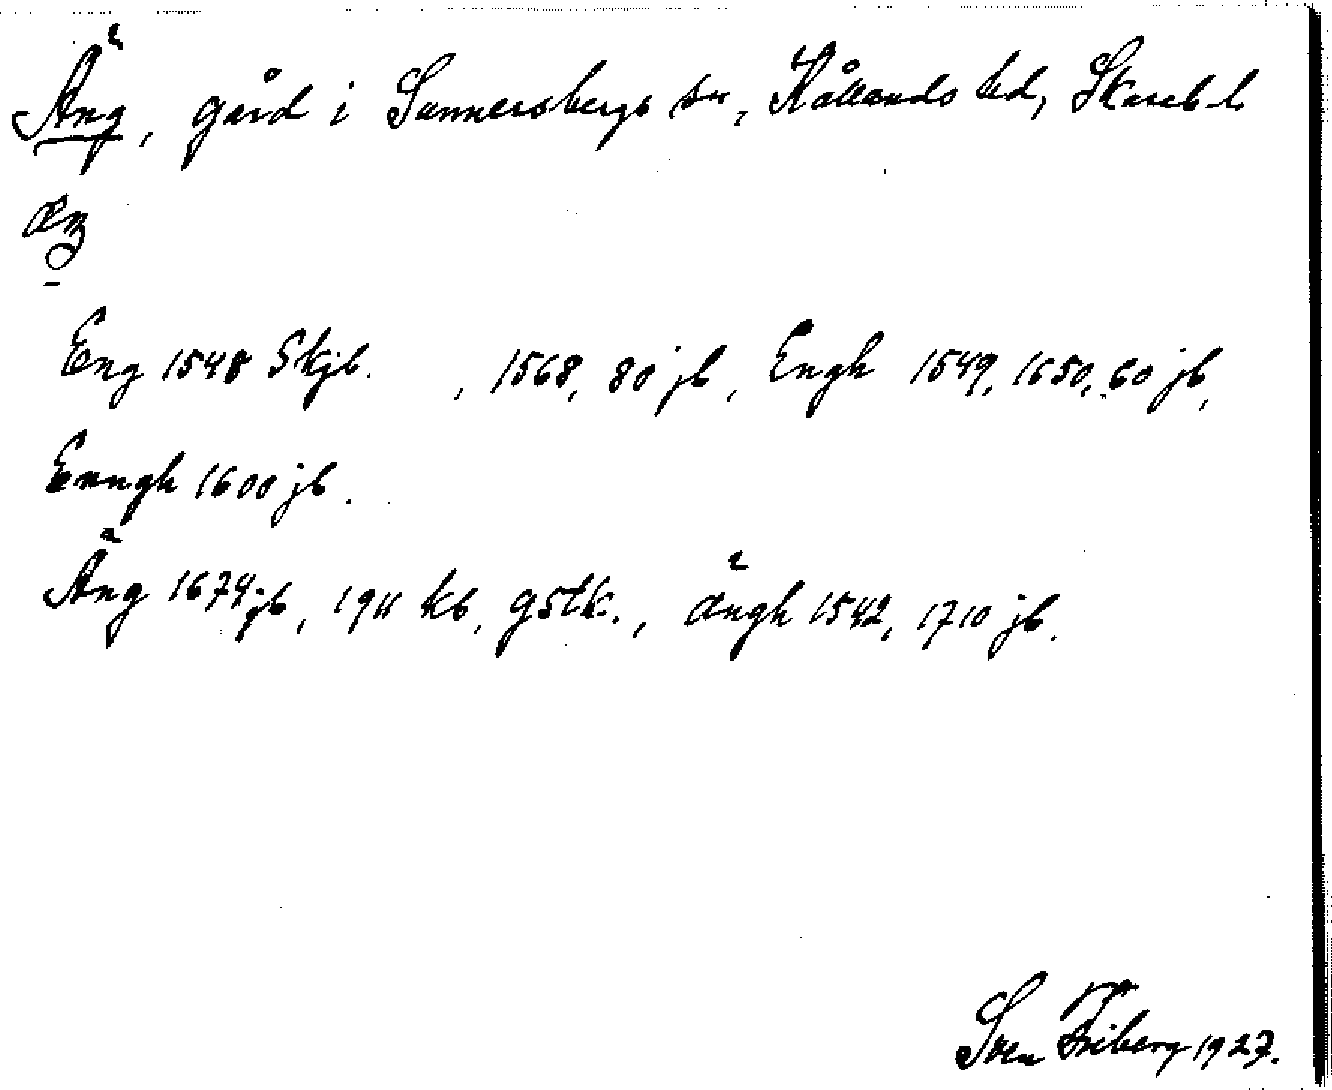 Äng, gård i Sunnersbergs sn, Kållands hd, Skarab l
Eng 1548 Skjb. , 1568, 80 jb, Engh 1549, 1650, 60 jb,
Enngh 1600 jb.
Äng 1674 jb, 1911 kb, gstk., ängh 1542, 1710 jb.
Sven Friberg 1927.